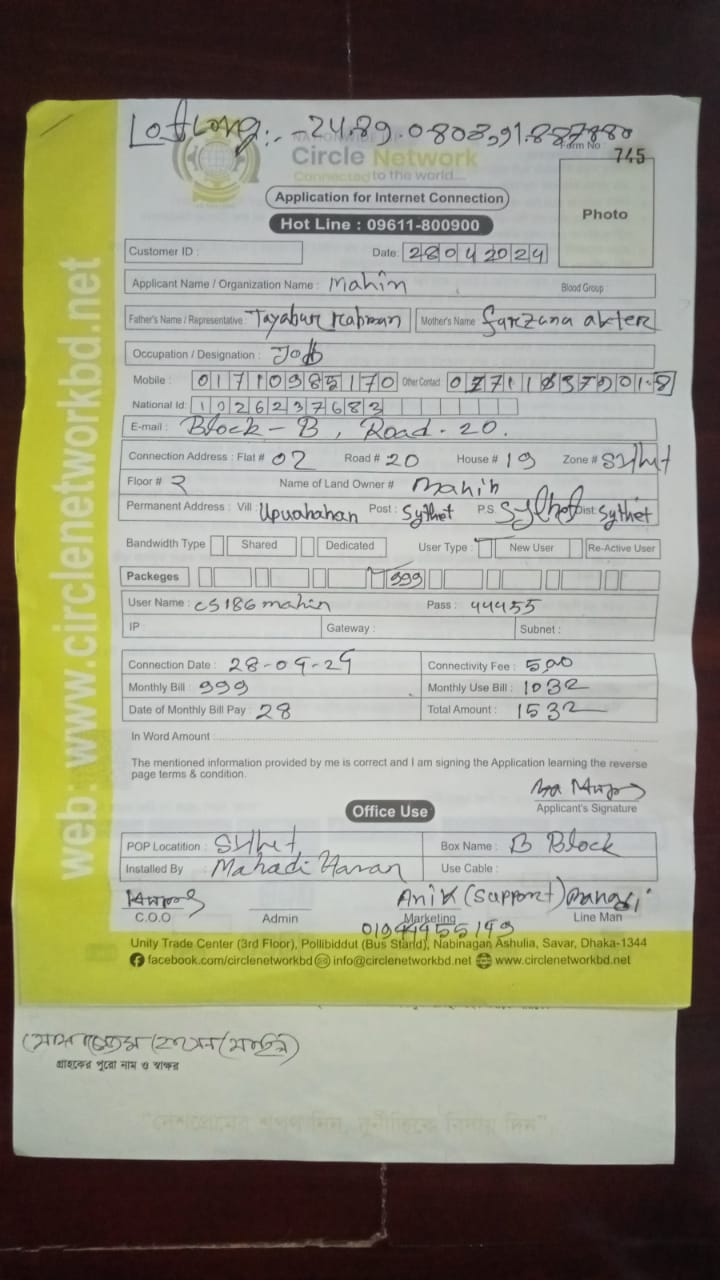 Lat Long:. - 24.89.0803,91.887880
Form No 745
Circle Network
Connected to the world...
Application for Internet Connection
Hot Line : 09611-800900
Photo
Customer ID : Date: 28042024
Applicant Name / Organization Name : Mahin Blood Group :
Father's Name / Representative : Tayabur Rahman Mother's Name farzana akter
Occupation / Designation : Job
Mobile : 01710985170 Other Contact
National Id: 1026237683
E-mail : Block - B, Road - 20.
Connection Address : Flat # 02 Road # 20 House # 19 Zone # Sylhet
Floor # 2 Name of Land Owner # Mahin
Permanent Address : Vill: Upushahan Post : Sylhet P.S Sylhet Dist Sylhet
Bandwidth Type Shared Dedicated User Type : New User Re-Active User
Packeges 999
User Name : cs186mahin Pass : 44455
IP : Gateway : Subnet :
Connection Date : 28-04-24 Connectivity Fee : 500
Monthly Bill : 999 Monthly Use Bill : 1032
Date of Monthly Bill Pay : 28 Total Amount : 1532
In Word Amount :
The mentioned information provided by me is correct and I am signing the Application learning the reverse
page terms & condition.
Applicant's Signature
Office Use
POP Locatition : Sylhet Box Name : B Block
Installed By Mahadi Hasan Use Cable :
Anik (Support)
C.O.O Admin Marketing Line Man
Unity Trade Center (3rd Floor), Pollibiddut (Bus Stand), Nabinagan Ashulia, Savar, Dhaka-1344
facebook.com/circlenetworkbd info@circlenetworkbd.net www.circlenetworkbd.net
web: www.circlenetworkbd.net
গ্রাহকের পুরো নাম ও স্বাক্ষর